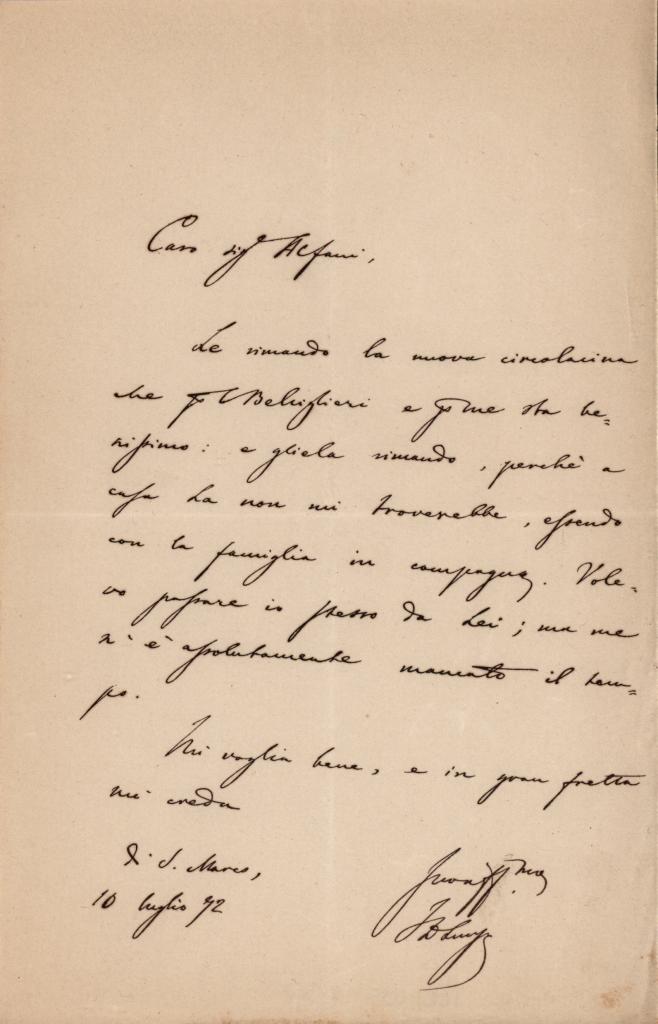 Caro sig.r Alfani,
Le rimando la nuova circolarina
che pel Belviglieri e per me sta be=
nissimo: e gliela rimando, perchè a
casa La non mi troverebbe, essendo
con la famiglia in campagna. Vole=
vo passare io stesso da Lei; ma me
n'è assolutamente mancato il tem=
po.
Mi voglia bene, e in gran fretta
mi creda
di S. Marco,
10 luglio 72